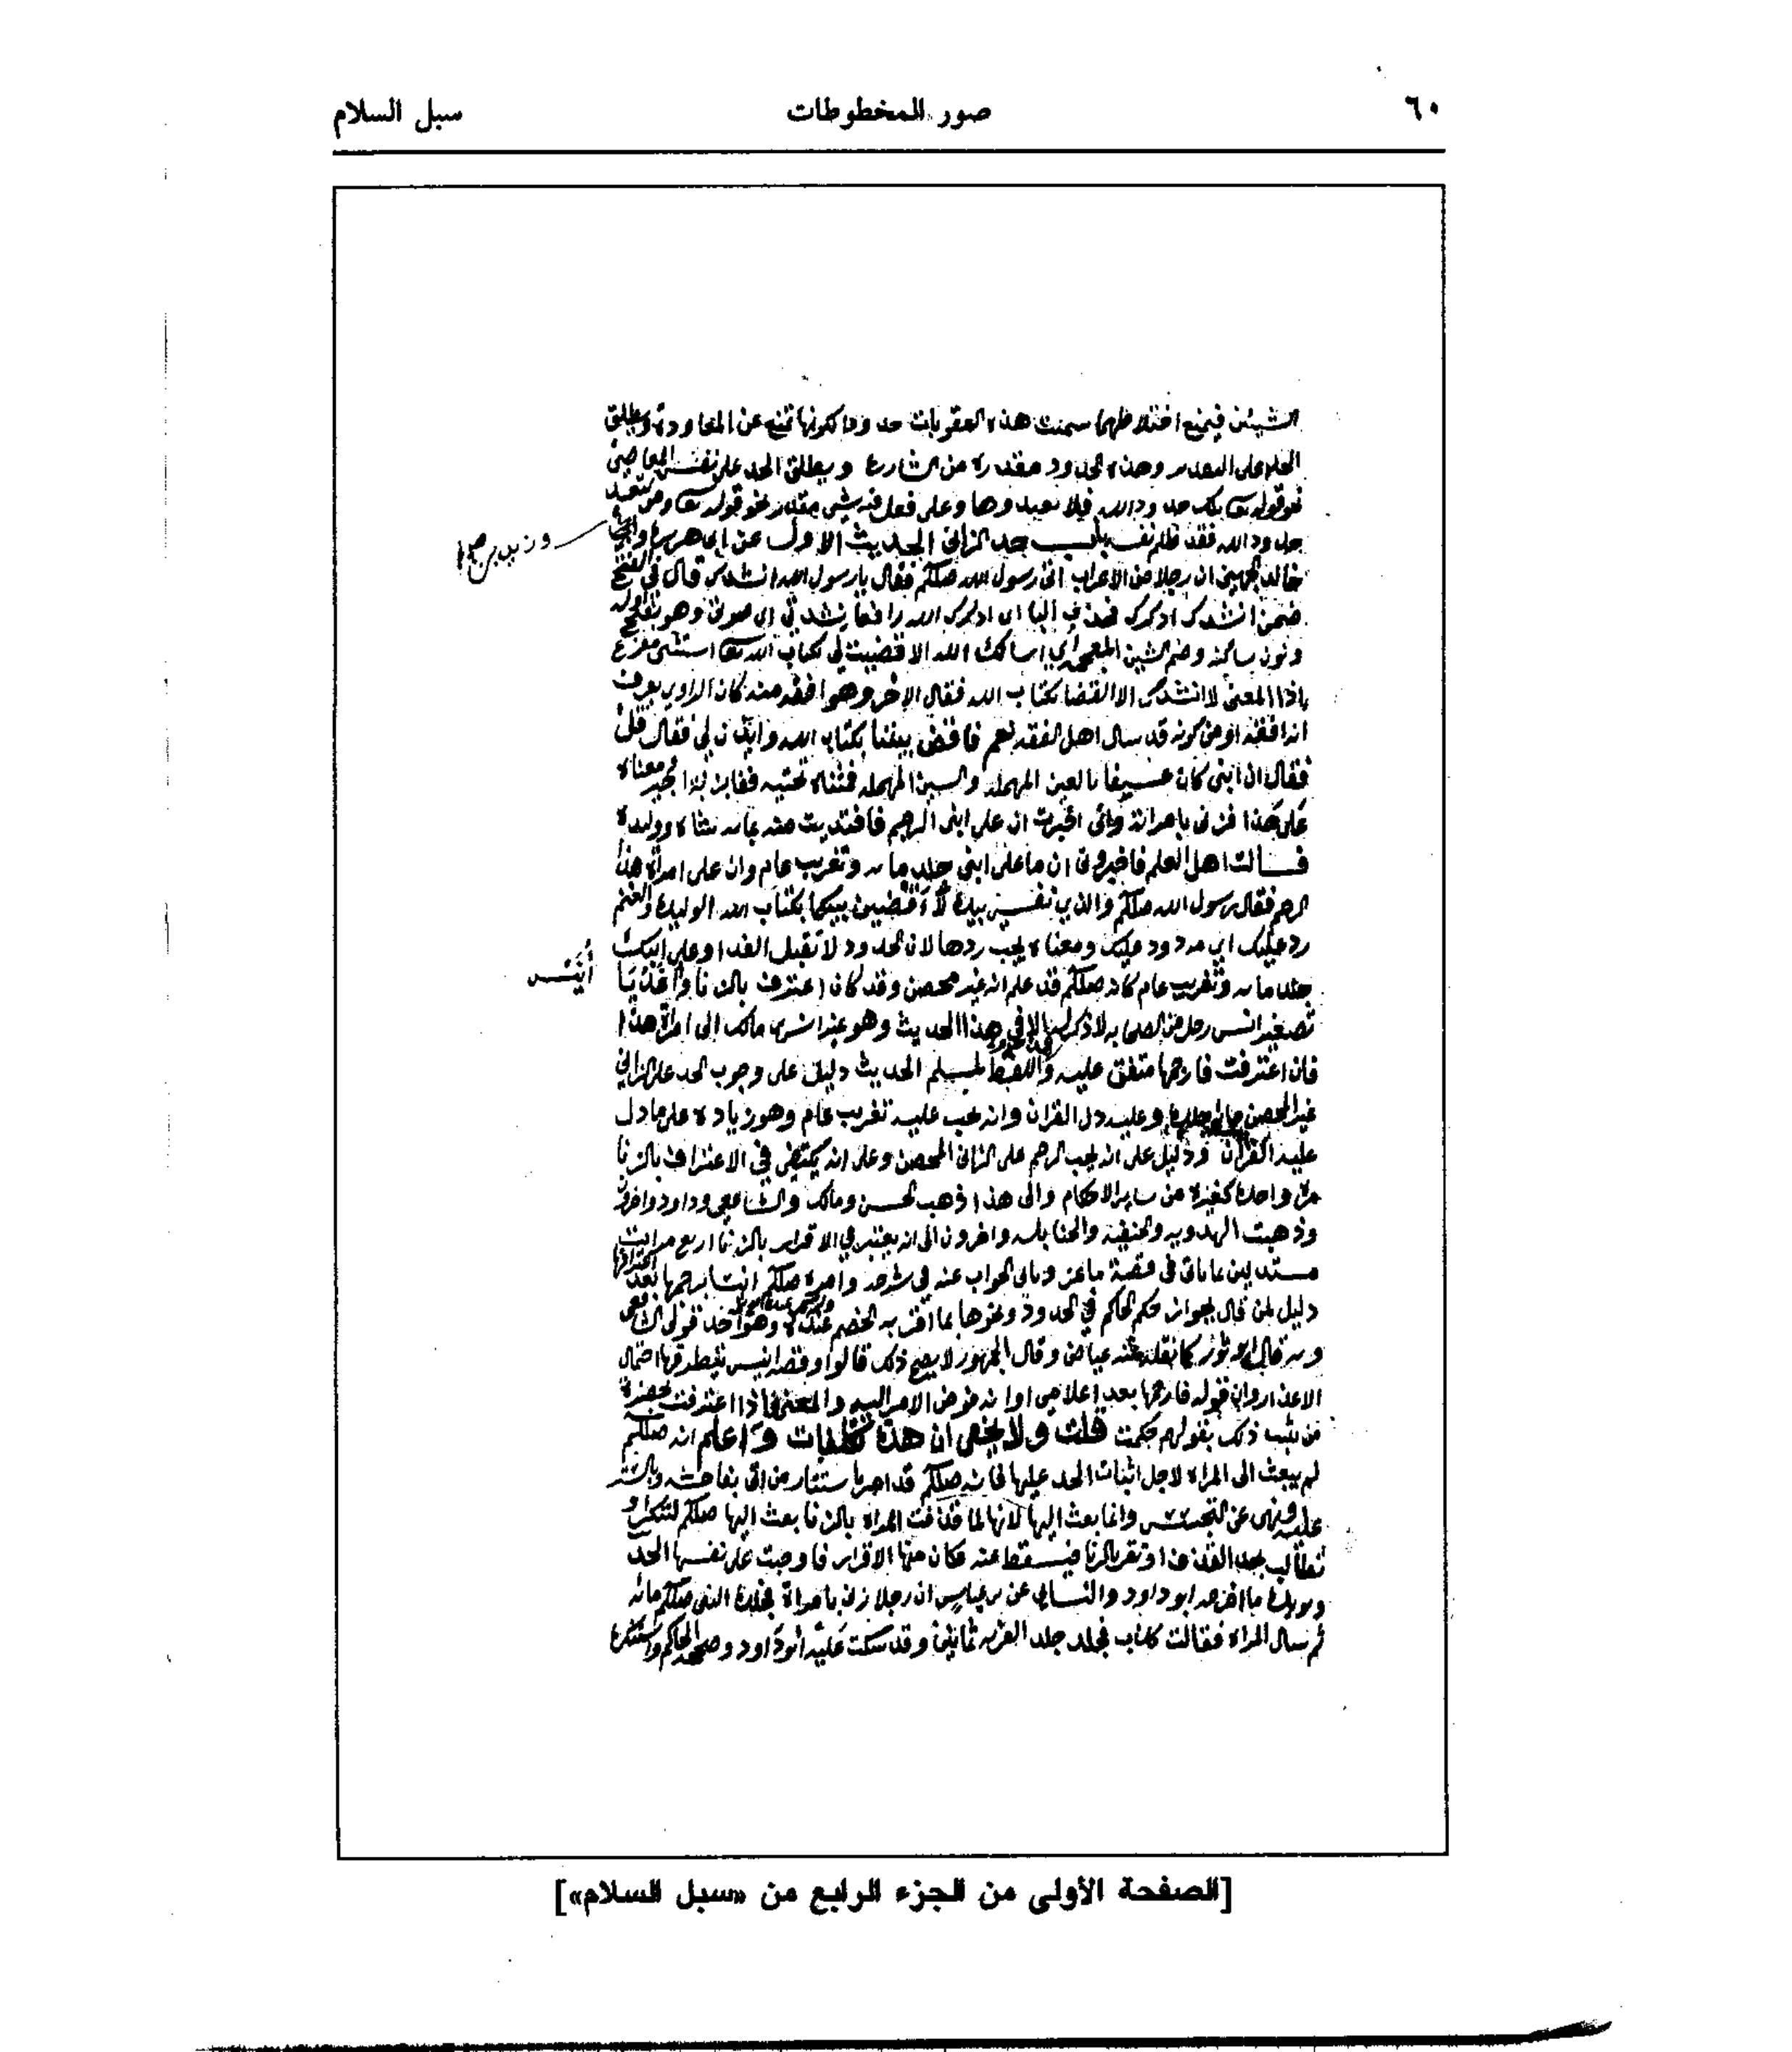 ٦٠ صور المخطوطات سبل السلام
الشيئين فيمنع اختلاطهما سميت هذه العقوبات حدودا لكونها تمنع عن المعاودة ويطلق
الحد على التقدير وهذه الحدود مقدرة من الشارع ويطلق الحد على نفس المعاصي
نحو قوله تعا تلك حدود الله فلا تعتدوها وعلى فعل فيه شي مقدر نحو قوله تعا ومن يتعد
حدود الله فقد ظلم نفسه باب حد الزاني الحديث الاول عن ابي هريرة
وزيد بن
خالد الجهني ان رجلا من الاعراب اتى رسول الله صللم فقال يا رسول الله انشدك قال في الفتح
ضمن انشدك اذكرك فحذف البا اى اذكرك الله رافعا نشدتي اى صوتي وهو بفتح اوله
ونون ساكنة وضم الشين المعجمة اي اسالك الله الا قضيت لي بكتاب الله تعا استثنى مفرغ
اذا المعنى لا انشدك الا القضا بكتاب الله فقال الاخر وهو افقه منه كان الراوي يعرف
انه افقه او من كونه قد سال اهل الفقه نعم فاقض بيننا بكتاب الله وايذن لي فقال قل
فقال ان ابني كان عسيفا بالعين المهملة والسين المهملة فمثناة تحتية ففا
على هذا فزنى بامراته واني اخبرت ان على ابني الرجم فافتديت منه بماية شاة ووليدة
فسالت اهل العلم فاخبروني ان ما على ابني جلد ماية وتغريب عام وان على امراة هذا
الرجم فقال رسول الله صللم والذي نفسي بيده لاقضين بينكما بكتاب الله الوليدة والغنم
رد عليك اي مردود عليك ومعناه يجب ردها لان الحدود لا تقبل الفدا وعلى ابنك
أُنَيْس
جلد ماية وتغريب عام كانه صللم قد علم انه غير محصن وقد كان اعترف بالزنا واغد يا
تصغير انس رجل من الصحابة لا ذكر له الا في هذا الحديث الى امراة هذا
فان اعترفت فارجمها متفق عليه واللفظ لمسلم الحديث دليل على وجوب الحد على الزاني
غير المحصن وعليه دل القران وانه يجب عليه تغريب عام وهو زيادة على ما دل
عليه القران ودليل على انه يجب الرجم على الزاني المحصن وعلى انه يكتفى في الاعتراف بالزنا
مرة واحدة كغيره من ساير الاحكام والى هذا ذهب الحسن ومالك والشافعي وداود واخرون
وذهبت الهدوية والحنفية والحنابلة واخرون الى انه يعتبر في الاقرار بالزنا اربع مرات
مستدلين بما ياتي في قصة ماعز وياتي الجواب عنه في شرحه وامره صللم انيسا برجمها بعد اعترافها
دليل لمن قال بجواز حكم الحاكم في الحدود ونحوها بما اقر به الخصم عنده وهو احد قولي الشافعي
وبه قال ابو ثور كما نقله عنه عياض وقال الجمهور لا يصح ذلك قالوا وقصة انيس يتطرقها احتمال
الاعذار وان قوله فارجمها بعد اعلامي اوانه فوض الامر اليه والمعنى فاذا اعترفت بحضرة
من يثبت ذلك بقولهم حكمت قلت ولا يخفى ان هذه تكلفات واعلم انه صللم
لم يبعث الى المراة لاجل اثبات الحد عليها فانه صللم قد امر باستتار من اتى بفاحشة وبالستر
عليه ونهى عن التجسس وانما بعث اليها لانها لما قذفت المراة بالزنا بعث اليها صللم لتنكر او
تطالب بحد القذف او تقر بالزنا فيسقط عنه فكان منها الاقرار فاوجبت على نفسها الحد
ويويده ما اخرجه ابو داود والنسائي عن بن عباس ان رجلا زنى بامراة فجلده النبي صللم مائة
ثم سال المراة فقالت كذب فجلد جلد الفرية ثمانين وقد سكت عليه ابو داود وصححه الحاكم واستنكره
[الصفحة الأولى من الجزء الرابع من «سبل السلام»]